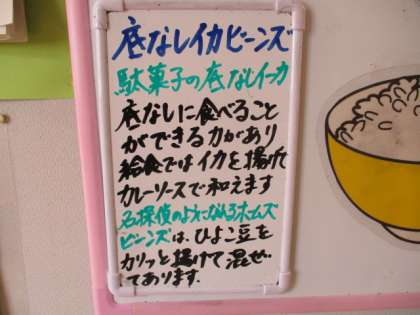 底なしイカビーンズ
駄菓子の底なしイカ
底なしに食べること
ができる力があり
給食ではイカを揚げて
カレーソースで和えます
名探偵のようになれるホームズ
ビーンズは、ひよこ豆を
カリッと揚げて混ぜ
てあります。